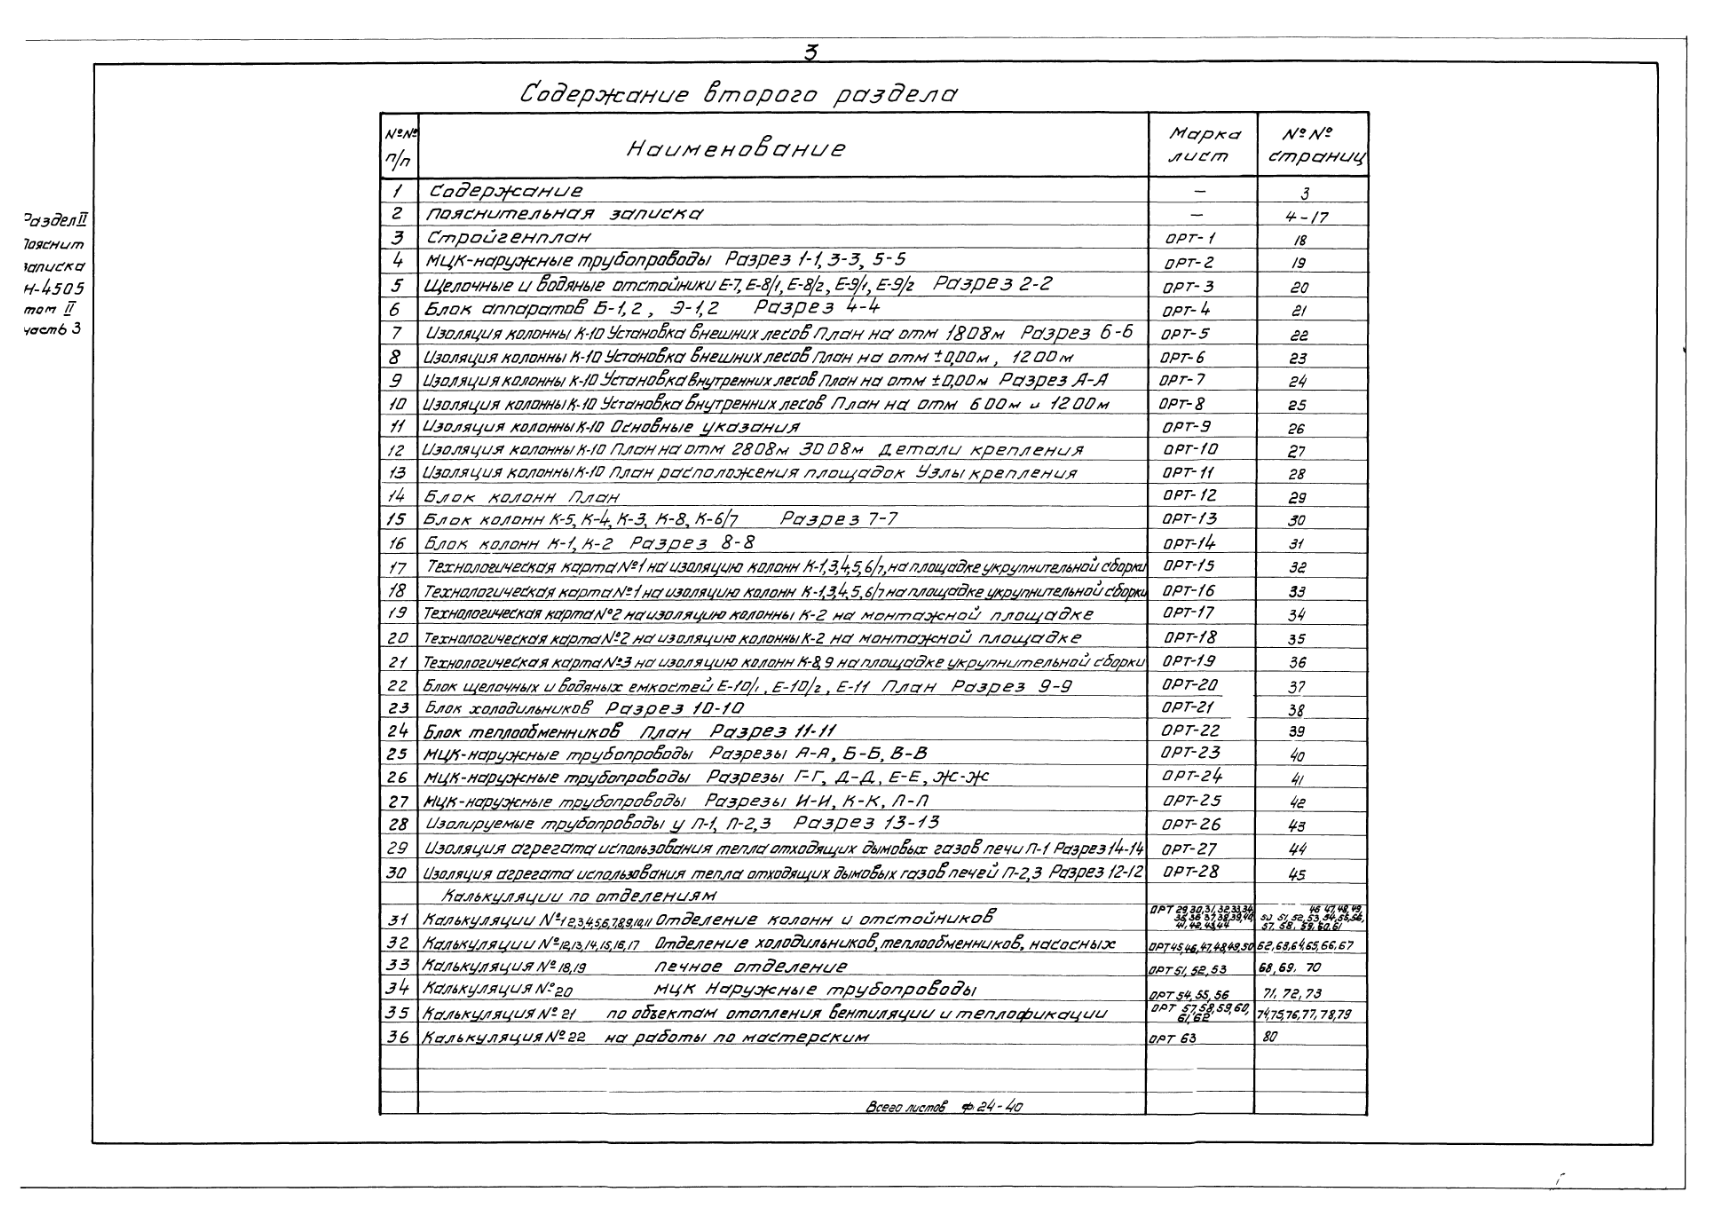 3
Содержание второго раздела
№№ п/п Наименование Марка лист №№ страниц
Раздел II
Пояснит
записка
Н-4505
том II
часть 3
1 Содержание — 3
2 Пояснительная записка — 4-17
3 Стройгенплан ОРТ-1 18
4 МЦК-наружные трубопроводы Разрез 1-1, 3-3, 5-5 ОРТ-2 19
5 Щелочные и водяные отстойники Е-7, Е-8/1, Е-8/2, Е-9/1, Е-9/2 Разрез 2-2 ОРТ-3 20
6 Блок аппаратов Б-1,2, Э-1,2 Разрез 4-4 ОРТ-4 21
7 Изоляция колонны К-10 Установка внешних лесов План на отм 1808м Разрез 6-6 ОРТ-5 22
8 Изоляция колонны К-10 Установка внешних лесов План на отм ±0,00м, 1200м ОРТ-6 23
9 Изоляция колонны К-10 Установка внутренних лесов План на отм ±0,00м Разрез А-А ОРТ-7 24
10 Изоляция колонны К-10 Установка внутренних лесов План на отм 600м и 1200м ОРТ-8 25
11 Изоляция колонны К-10 Основные указания ОРТ-9 26
12 Изоляция колонны К-10 План на отм 2808м 3008м Детали крепления ОРТ-10 27
13 Изоляция колонны К-10 План расположения площадок Узлы крепления ОРТ-11 28
14 Блок колонн План ОРТ-12 29
15 Блок колонн К-5, К-4, К-3, К-8, К-6/7 Разрез 7-7 ОРТ-13 30
16 Блок колонн К-1, К-2 Разрез 8-8 ОРТ-14 31
17 Технологическая карта №1 на изоляцию колонн К-1,3,4,5,6/7, на площадке укрупнительной сборки ОРТ-15 32
18 Технологическая карта №1 на изоляцию колонн К-1,3,4,5,6/7 на площадке укрупнительной сборки ОРТ-16 33
19 Технологическая карта №2 на изоляцию колонны К-2 на монтажной площадке ОРТ-17 34
20 Технологическая карта №2 на изоляцию колонны К-2 на монтажной площадке ОРТ-18 35
21 Технологическая карта №3 на изоляцию колонн К-8,9 на площадке укрупнительной сборки ОРТ-19 36
22 Блок щелочных и водяных емкостей Е-10/1, Е-10/2, Е-11 План Разрез 9-9 ОРТ-20 37
23 Блок холодильников Разрез 10-10 ОРТ-21 38
24 Блок теплообменников План Разрез 11-11 ОРТ-22 39
25 МЦК-наружные трубопроводы Разрезы А-А, Б-Б, В-В ОРТ-23 40
26 МЦК-наружные трубопроводы Разрезы Г-Г, Д-Д, Е-Е, Ж-Ж ОРТ-24 41
27 МЦК-наружные трубопроводы Разрезы И-И, К-К, Л-Л ОРТ-25 42
28 Изолируемые трубопроводы у П-1, П-2,3 Разрез 13-13 ОРТ-26 43
29 Изоляция агрегата использования тепла отходящих дымовых газов печи П-1 Разрез 14-14 ОРТ-27 44
30 Изоляция агрегата использования тепла отходящих дымовых газов печей П-2,3 Разрез 12-12 ОРТ-28 45
Калькуляции по отделениям
31 Калькуляции №1,2,3,4,5,6,7,8,9,10,11 Отделение колонн и отстойников ОРТ 29,30,31,32,33,34, 35,36,37,38,39,40, 41,42,43,44 46,47,48,49, 50,51,52,53,54,55,56, 57,58,59,60,61
32 Калькуляции №12,13,14,15,16,17 Отделение холодильников, теплообменников, насосных ОРТ 45,46,47,48,49,50 62,63,64,65,66,67
33 Калькуляция №18,19 печное отделение ОРТ 51,52,53 68,69,70
34 Калькуляция №20 МЦК Наружные трубопроводы ОРТ 54,55,56 71,72,73
35 Калькуляция №21 по объектам отопления вентиляции и теплофикации ОРТ 57,58,59,60, 61,62 74,75,76,77,78,79
36 Калькуляция №22 на работы по мастерским ОРТ 63 80
Всего листов ф.24-40